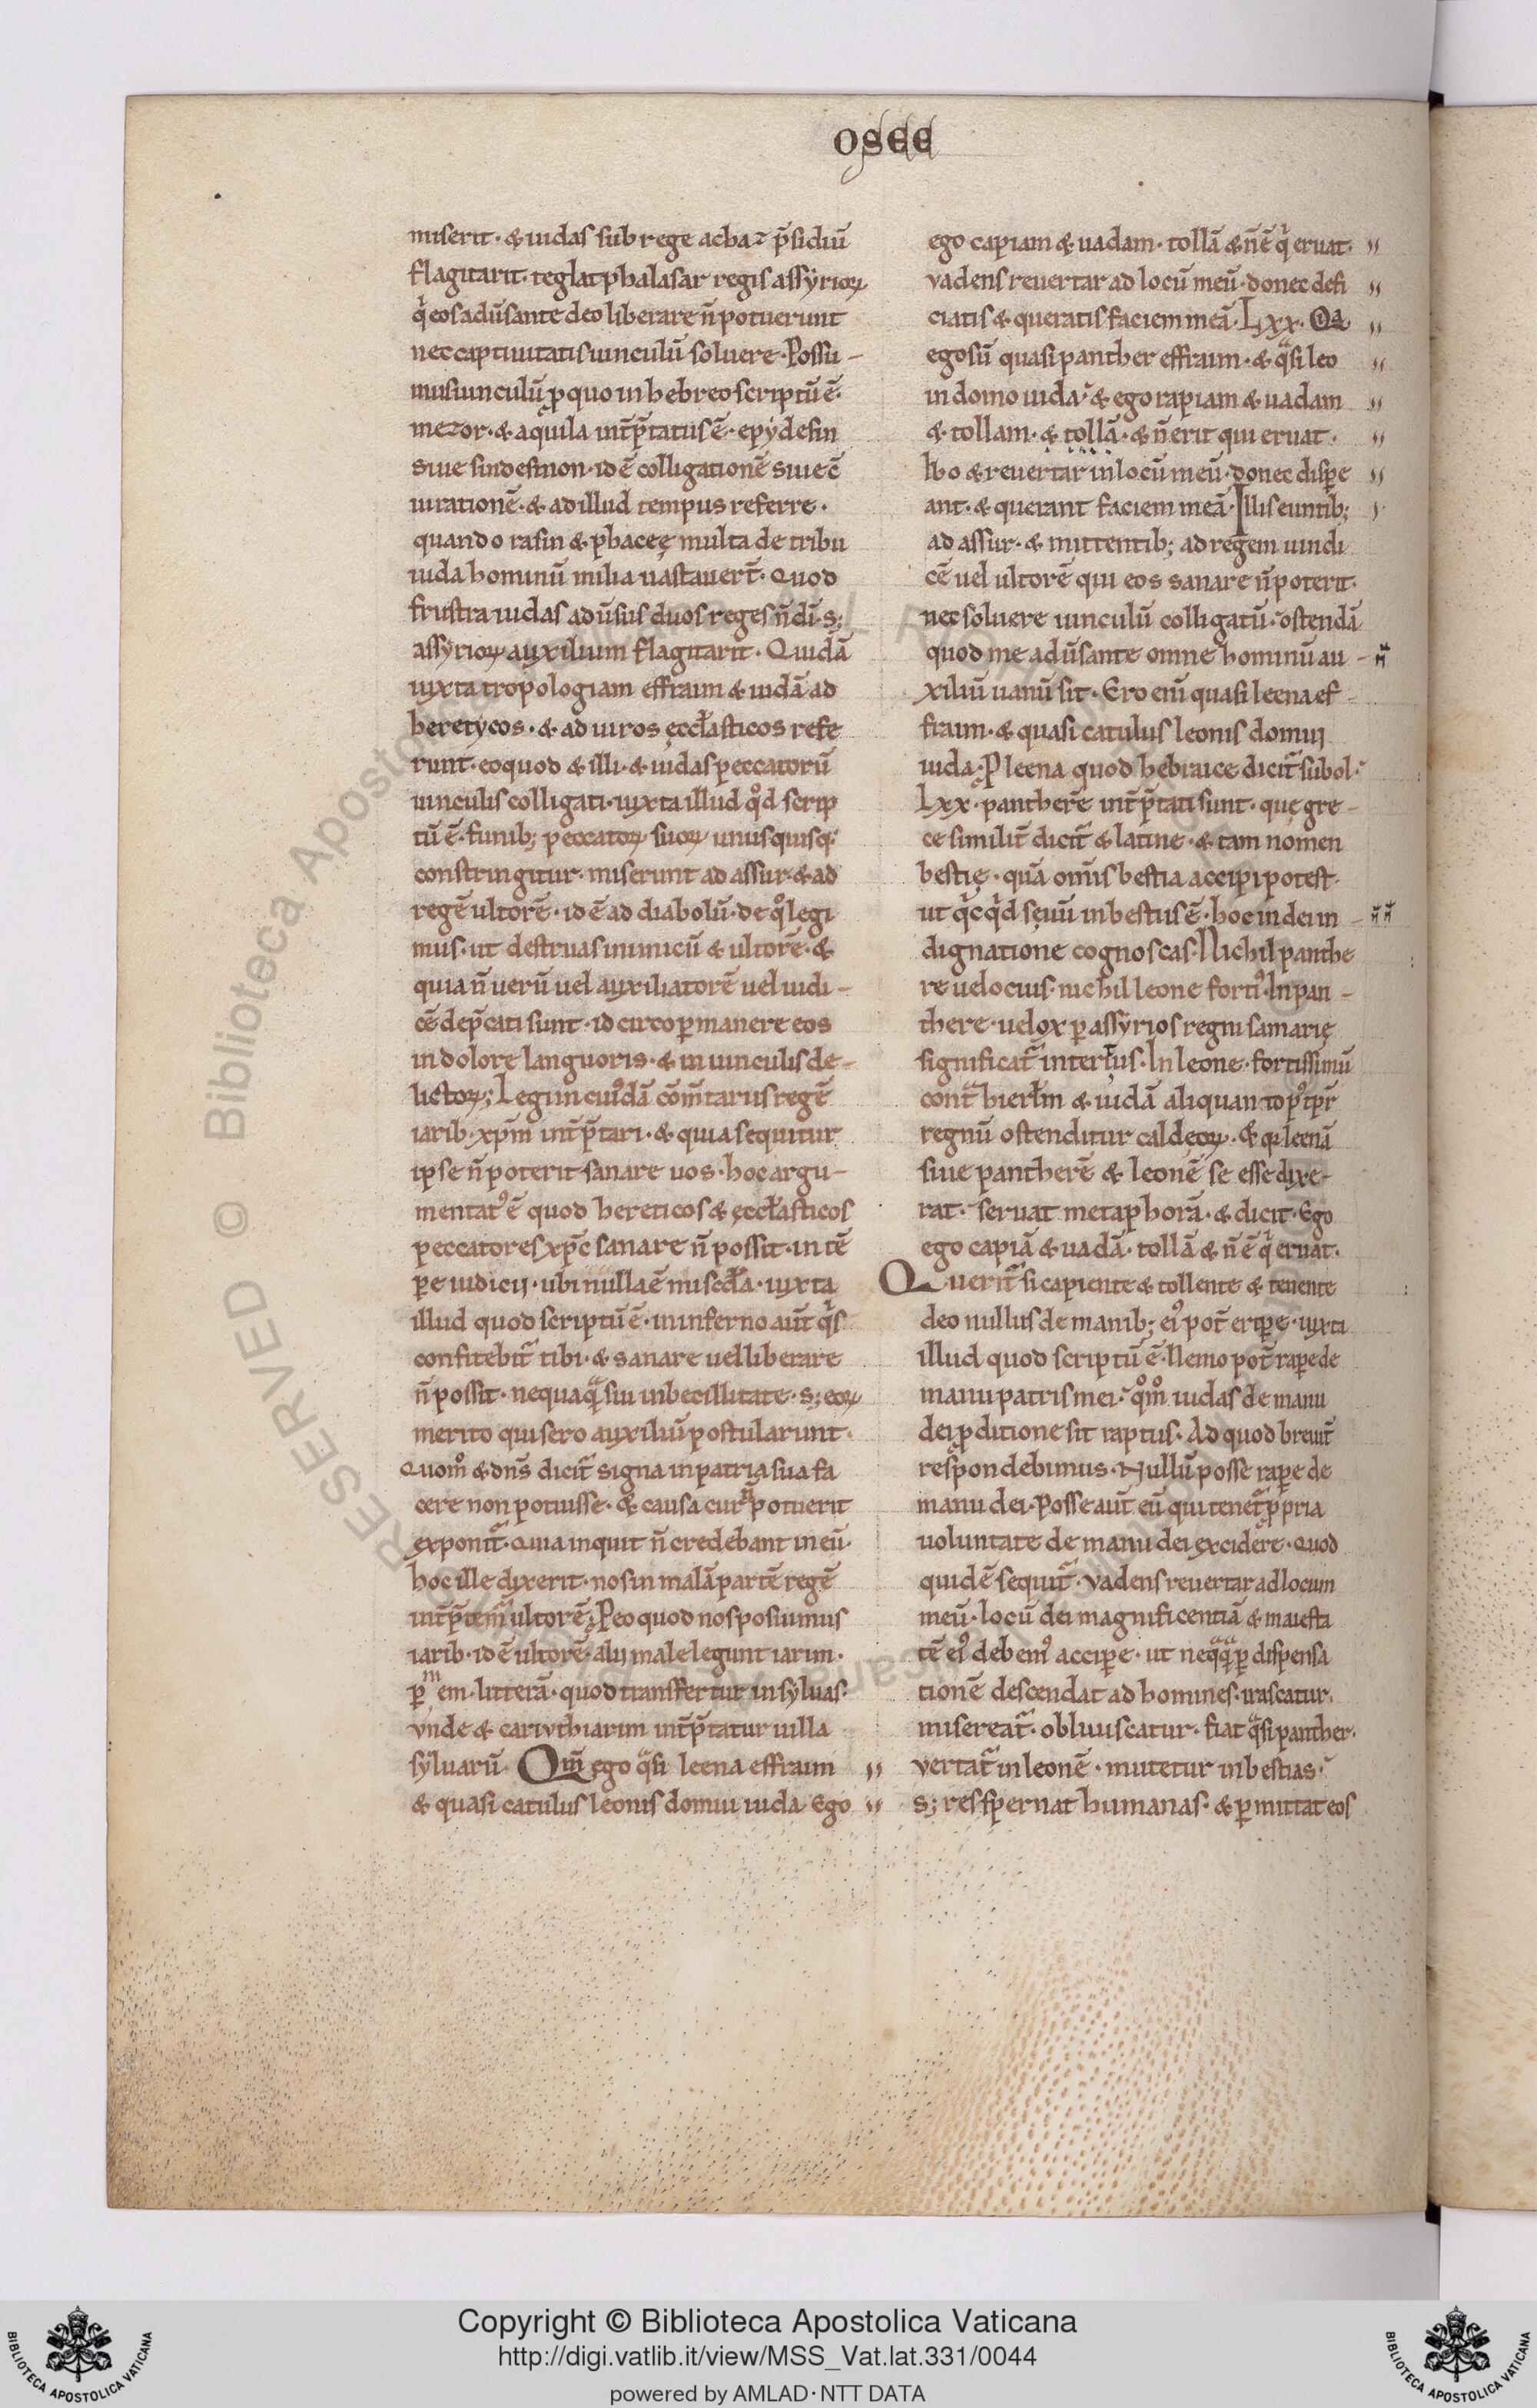 osee
miserit · & iudas sub rege achaz p̄sidiū
flagitarit · teglatphalasar regis assyrioꝝ
q̇ eos adūsante deo liberare n̄ potuerunt
nec captiuitatis uinculū soluere · Possu-
mus uinculū ꝓ quo in hebreo scriptū ē ·
mezor · & aquila int̄p̄tatus ē · epydesin
siue sindesmon · id ē colligationē siue c̄
iurationē · & ad illud tempus referre ·
quando rasin & phaceę multa de tribu
iuda hominū milia uastauert̄ · Quod
frustra iudas adūsus duos reges n̄ di · s;
assyrioꝝ auxilium flagitarit · Quidā
iuxta tropologiam effraim & iudā ad
heretycos · & ad uiros ęccl̄asticos refe
runt · eo quod & illi · & iudas peccatorū
uinculis colligati · iuxta illud qd̊ scrip
tū ē · funib; peccatoꝝ suoꝝ unusquisq;
constringitur · miserunt ad assur · & ad
regē ultorē · id ē ad diabolū · de qͦ legi
mus · ut destruas inimicū & ultorē · &
quia n̄ uerū uel auxiliatorē uel iudi-
cē dep̄cati sunt · id circo ꝑmanere eos
in dolore languoris · & in uinculis de-
lictoꝝ; Legi in cui᾽dā cōm̄tariis regē
iarib · xp̄m int̄p̄tari · & quia sequitur
ipse n̄ poterit sanare uos · hoc argu-
mentat᾽ ē quod hereticos & ęccl̄asticos
peccatores xp̄c sanare n̄ possit · in tē
ꝑe iudicij · ubi nulla ē miscd̄a · iuxta
illud quod scriptū ē · in inferno aut̄ q̇s
confitebit̄ tibi · & sanare uel liberare
n̄ possit · nequaqᷓ sui inbecillitate · s; eoꝝ
merito qui sero auxiliū postularunt ·
Quom̊ & dn̄s dicit̄ signa in patria sua fa
cere non potuisse · & causa cur n̄ potuerit
exponit̄ · Quia inquit n̄ credebant in eū ·
hoc ille dixerit · nos in malā partē regē
int̄p̄temᷓ ultorē; Peo quod nos posiuimus
iarib · id ē ultorē · alii male legunt iarim ·
ꝑ m em · litterā · quod transffertur in syluas ·
vnde & cariythiarim int̄p̄tatur uilla
syluarū · Qm̄ ego qᷓsi leena effraim
& quasi catulus leonis domui iuda Ego
ego capiam & uadam · tollā & n̄ ē q̇ eruat ·
vadens reuertar ad locū meū · donec defi
ciatis & queratis faciem meā · Lxx · Qa
ego sū quasi panther effraim · & qᷓsi leo
in domo iuda · & ego rapiam & uadam
& · tollam · & tollā · & n̄ erit qui eruat ·
Ibo & reuertar in locū meū · donec dispe
ant · & querant faciem meā · Illis euntib;
ad assur · & mittentib; ad regem uindi
cē uel ultorē qui eos sanare n̄ poterit ·
nec soluere uinculū colligatū · ostendā
quod me adūsante omne hominū au-
xiliū uanū sit · Ero eni᷑ quasi leena ef-
fraim · & quasi catulus leonis domui
iuda · P leena quod hebraice dicit̄ subol ·
Lxx · pantherē int̄p̄tati sunt · que gre-
ce similit̄ dicit̄ & latine · & tam nomen
bestię · quā om̄is bestia accipi potest ·
ut q̇cq̇d sęuū in bestiis ē · hoc in dei in-
dignatione cognoscas · Nichil panthe
re uelocius · nichil leone forti᾽ · In pan-
there · uelox ꝑ assyrios regni samarię
significat̄ interitus · In leone · fortissimū
contᷓ hierl̄m & iudā aliquanto p᾽ tp̄r
regnū ostenditur caldeoꝝ · & qꝛ leenā
siue pantherē & leonē se esse dixe-
rat · seruat metaphorā · & dicit · Ego
ego capiā & uadā · tollā & n̄ ē q̇ eruat ·
Querit̄ si capiente & tollente & tenente
deo nullus de manib; ei᾽ pot̄ eripe · iuxta
illud quod scriptū ē · Nemo pot̄ raꝑe de
manu patris mei · qͦm̊ iudas de manu
dei ꝑditione sit raptus · Ad quod breuit̄
respondebimus · Nullū posse raꝑe de
manu dei · Posse aut̄ eū qui tenet̄ ꝓpria
uoluntate de manu dei excidere · Quod
quidē sequit̄ · vadens reuertar ad locum
meū · locū dei magnificentiā & maiesta
tē ei᾽ debem᾽ acciꝑe · ut neqᷓqᷓ ꝑ dispensa
tionē descendat ad homines · irascatur ·
misereat̄ · obliuiscatur · fiat qᷓsi panther ·
vertat̄ in leonē · mutetur in bestias ·
s; res spernat humanas · & ꝑmittat eos
Copyright © Biblioteca Apostolica Vaticana
http://digi.vatlib.it/view/MSS_Vat.lat.331/0044
powered by AMLAD · NTT DATA